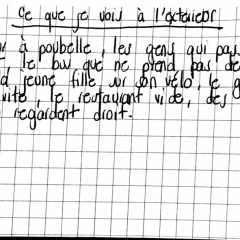 Ce que je vois à l'exterieur
à poubelle, les gens qui pas
le bus que ne prend pas de
jeune fille sur son vélo, le g
vite, le restaurant vide, des
regardent droit.